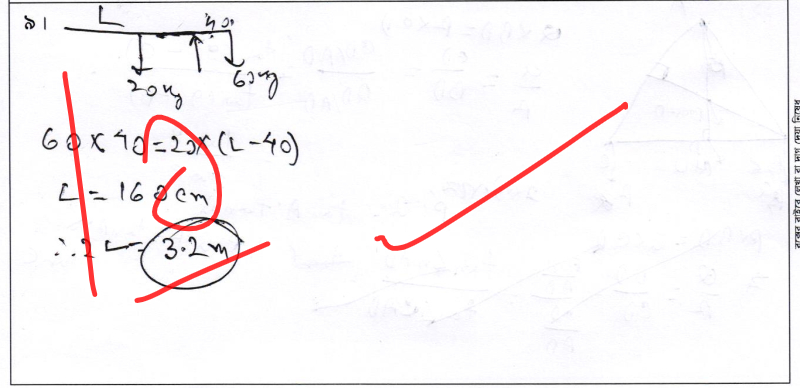 ৯।
L
40
20 kg
60 kg
60 × 40 = 20 × (L - 40)
L = 160 cm
∴ 2L = 3.2 m
বক্সের বাইরে লেখা বা দাগ দেয়া নিষেধ